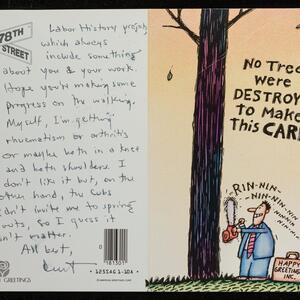 78TH
STREET
Labor History project
which always
include something
about you & your work.
Hope you're making some
progress on the walking.
Myself, I'm getting
rheumatism or arthritis
or maybe both in a knee
and both shoulders. I
don't like it but, on the
other hand, the Cubs
didn't invite me to spring
outs, so I guess it
n't matter.
All best,
GREETINGS
No Tree
Were
DESTROY
To Make
This CAR
RIN-NIN-
NIN-NIN-NIN
HAPPY
GREETING
INC.